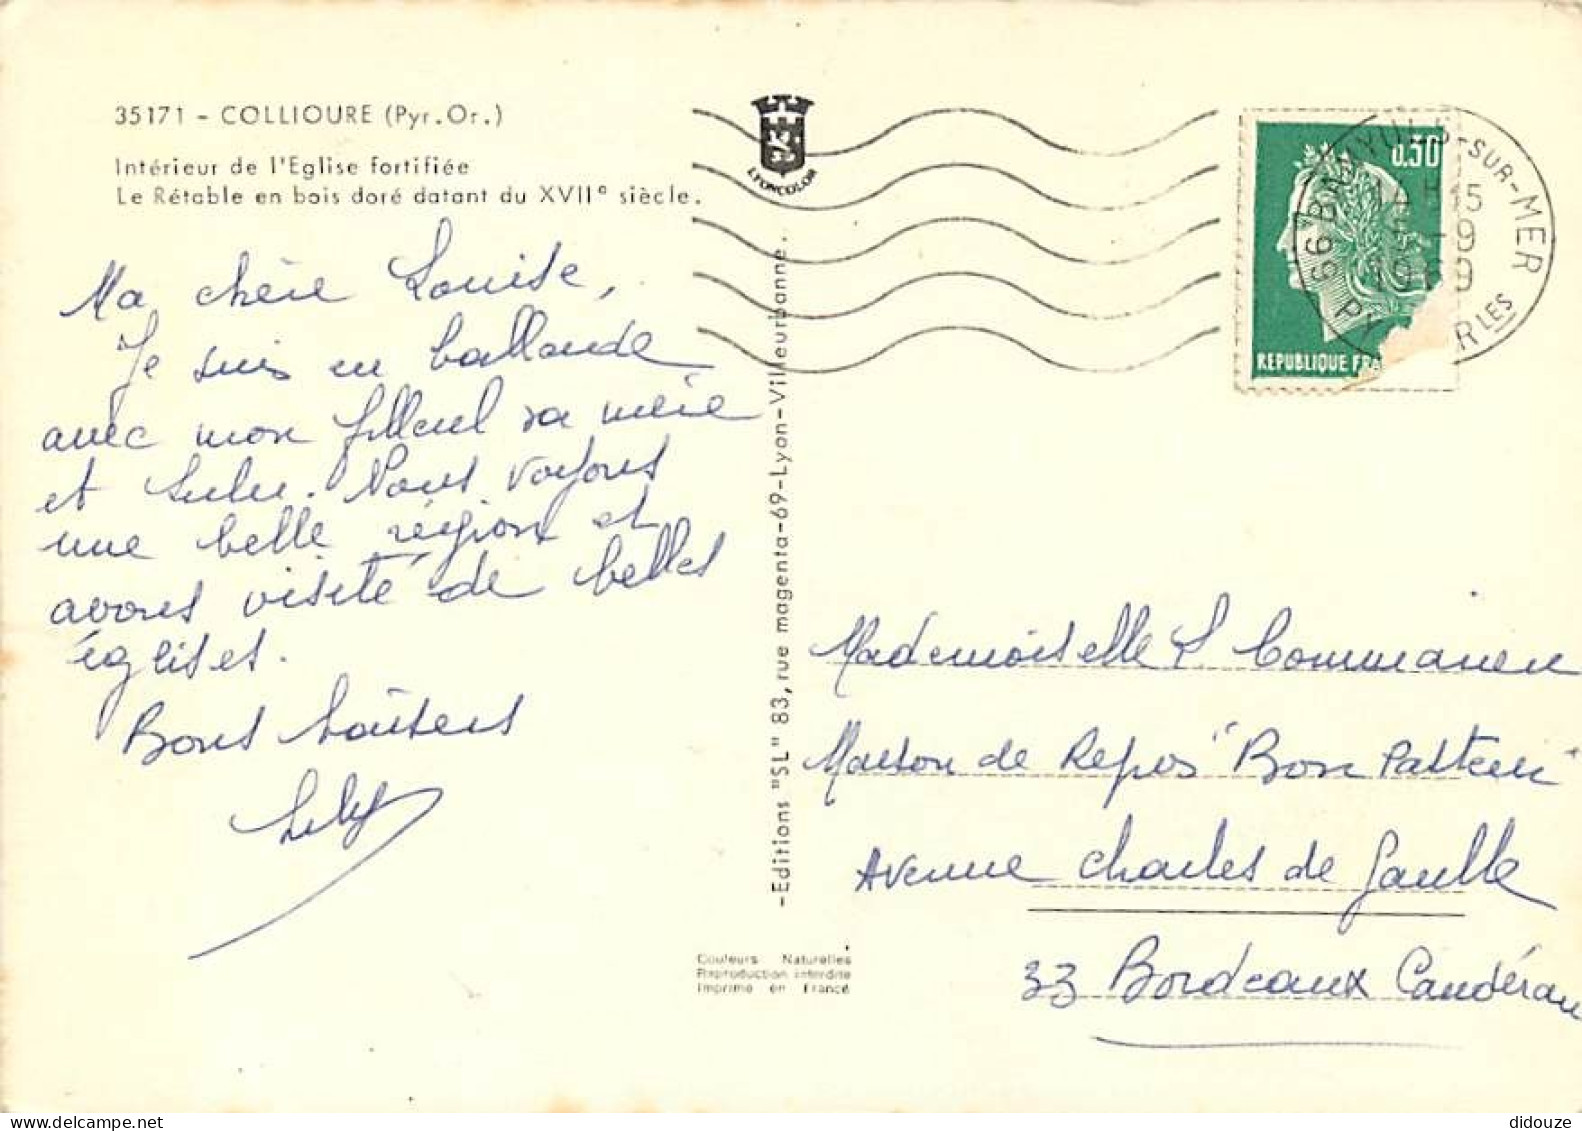 35171 - COLLIOURE (Pyr.Or.)
Intérieur de l'Eglise fortifiée
Le Rétable en bois doré datant du XVII° siècle.
LYONCOLOR
Ma chère Louise,
Je suis en ballande
avec mon filleul sa mère
et Lulu. Nous voyons
une belle région et
avons visité de belles
églises.
Bons baisers
Lily
-Editions "SL" 83, rue magenta-69-Lyon-Villeurbanne.
Couleurs Naturelles
Reproduction interdite
Imprimé en France
0.30
REPUBLIQUE FRA
66 BANYULS-SUR-MER
15
-9
1969
PY R LES
Mademoiselle L
Maison de Repos "Bon Pasteur"
Avenue Charles de Gaulle
33 Bordeaux Caudéran
didouze